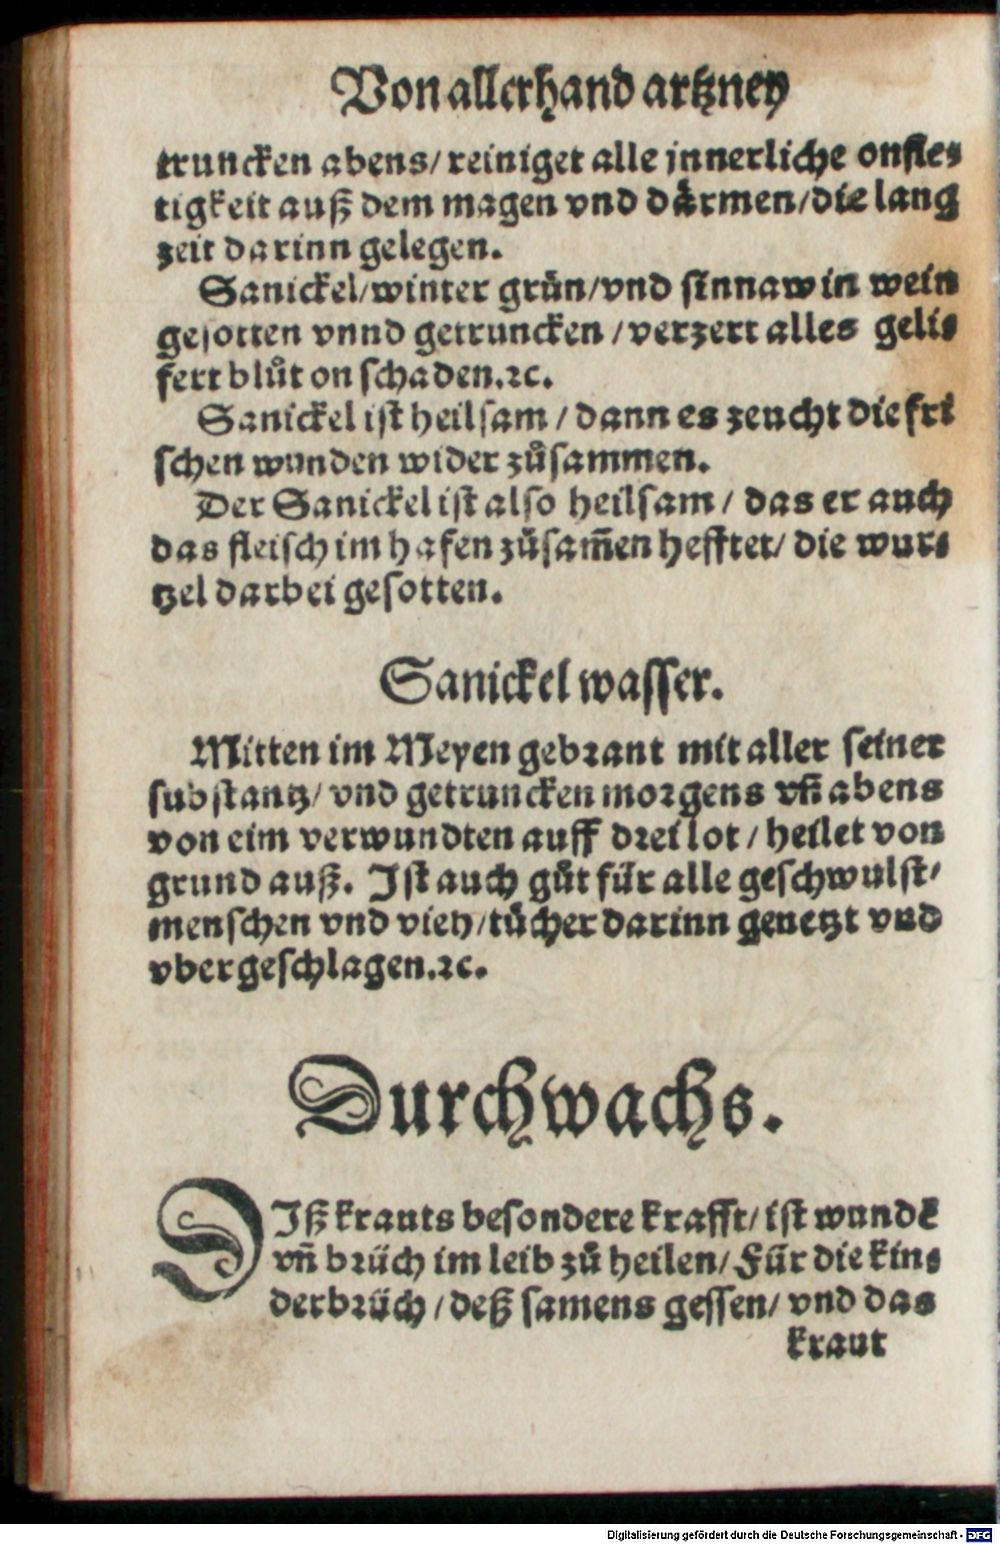 Von allerhand artzney
truncken abens/ reiniget alle jnnerliche onfle⸗
tigkeit auß dem magen vnd daͤrmen/die lang
zeit darinn gelegen.
Sanickel/winter gruͤn/vnd sinnaw in wein
gesotten vnnd getruncken /verzert alles geli⸗
fert bluͦt on schaden.ꝛc.
Sanickel ist heilsam / dann es zeucht die fri
schen wunden wider zuͦsammen.
Der Sanickel ist also heilsam / das er auch
das fleisch im hafen zuͦsam̃en hefftet/ die wur⸗
tzel darbei gesotten.
Sanickel wasser.
Mitten im Meyen gebꝛant mit aller seiner
substantz/ vnd getruncken moꝛgens vñ abens
von eim verwundten auff dꝛei lot / heilet von
grund auß. Ist auch guͦt fuͤr alle geschwulst/
menschen vnd vieh/tuͤcher darinn genetzt vnd
vbergeschlagen.ꝛc.
Durchwachs.
DIß krauts besondere krafft/ ist wundẽ
vñ bꝛuͤch im leib zuͦ heilen/ Fuͤr die kin⸗
derbꝛuͤch / deß samens gessen/ vnd das
kraut
Digitalisierung gefördert durch die Deutsche Forschungsgemeinschaft - DFG